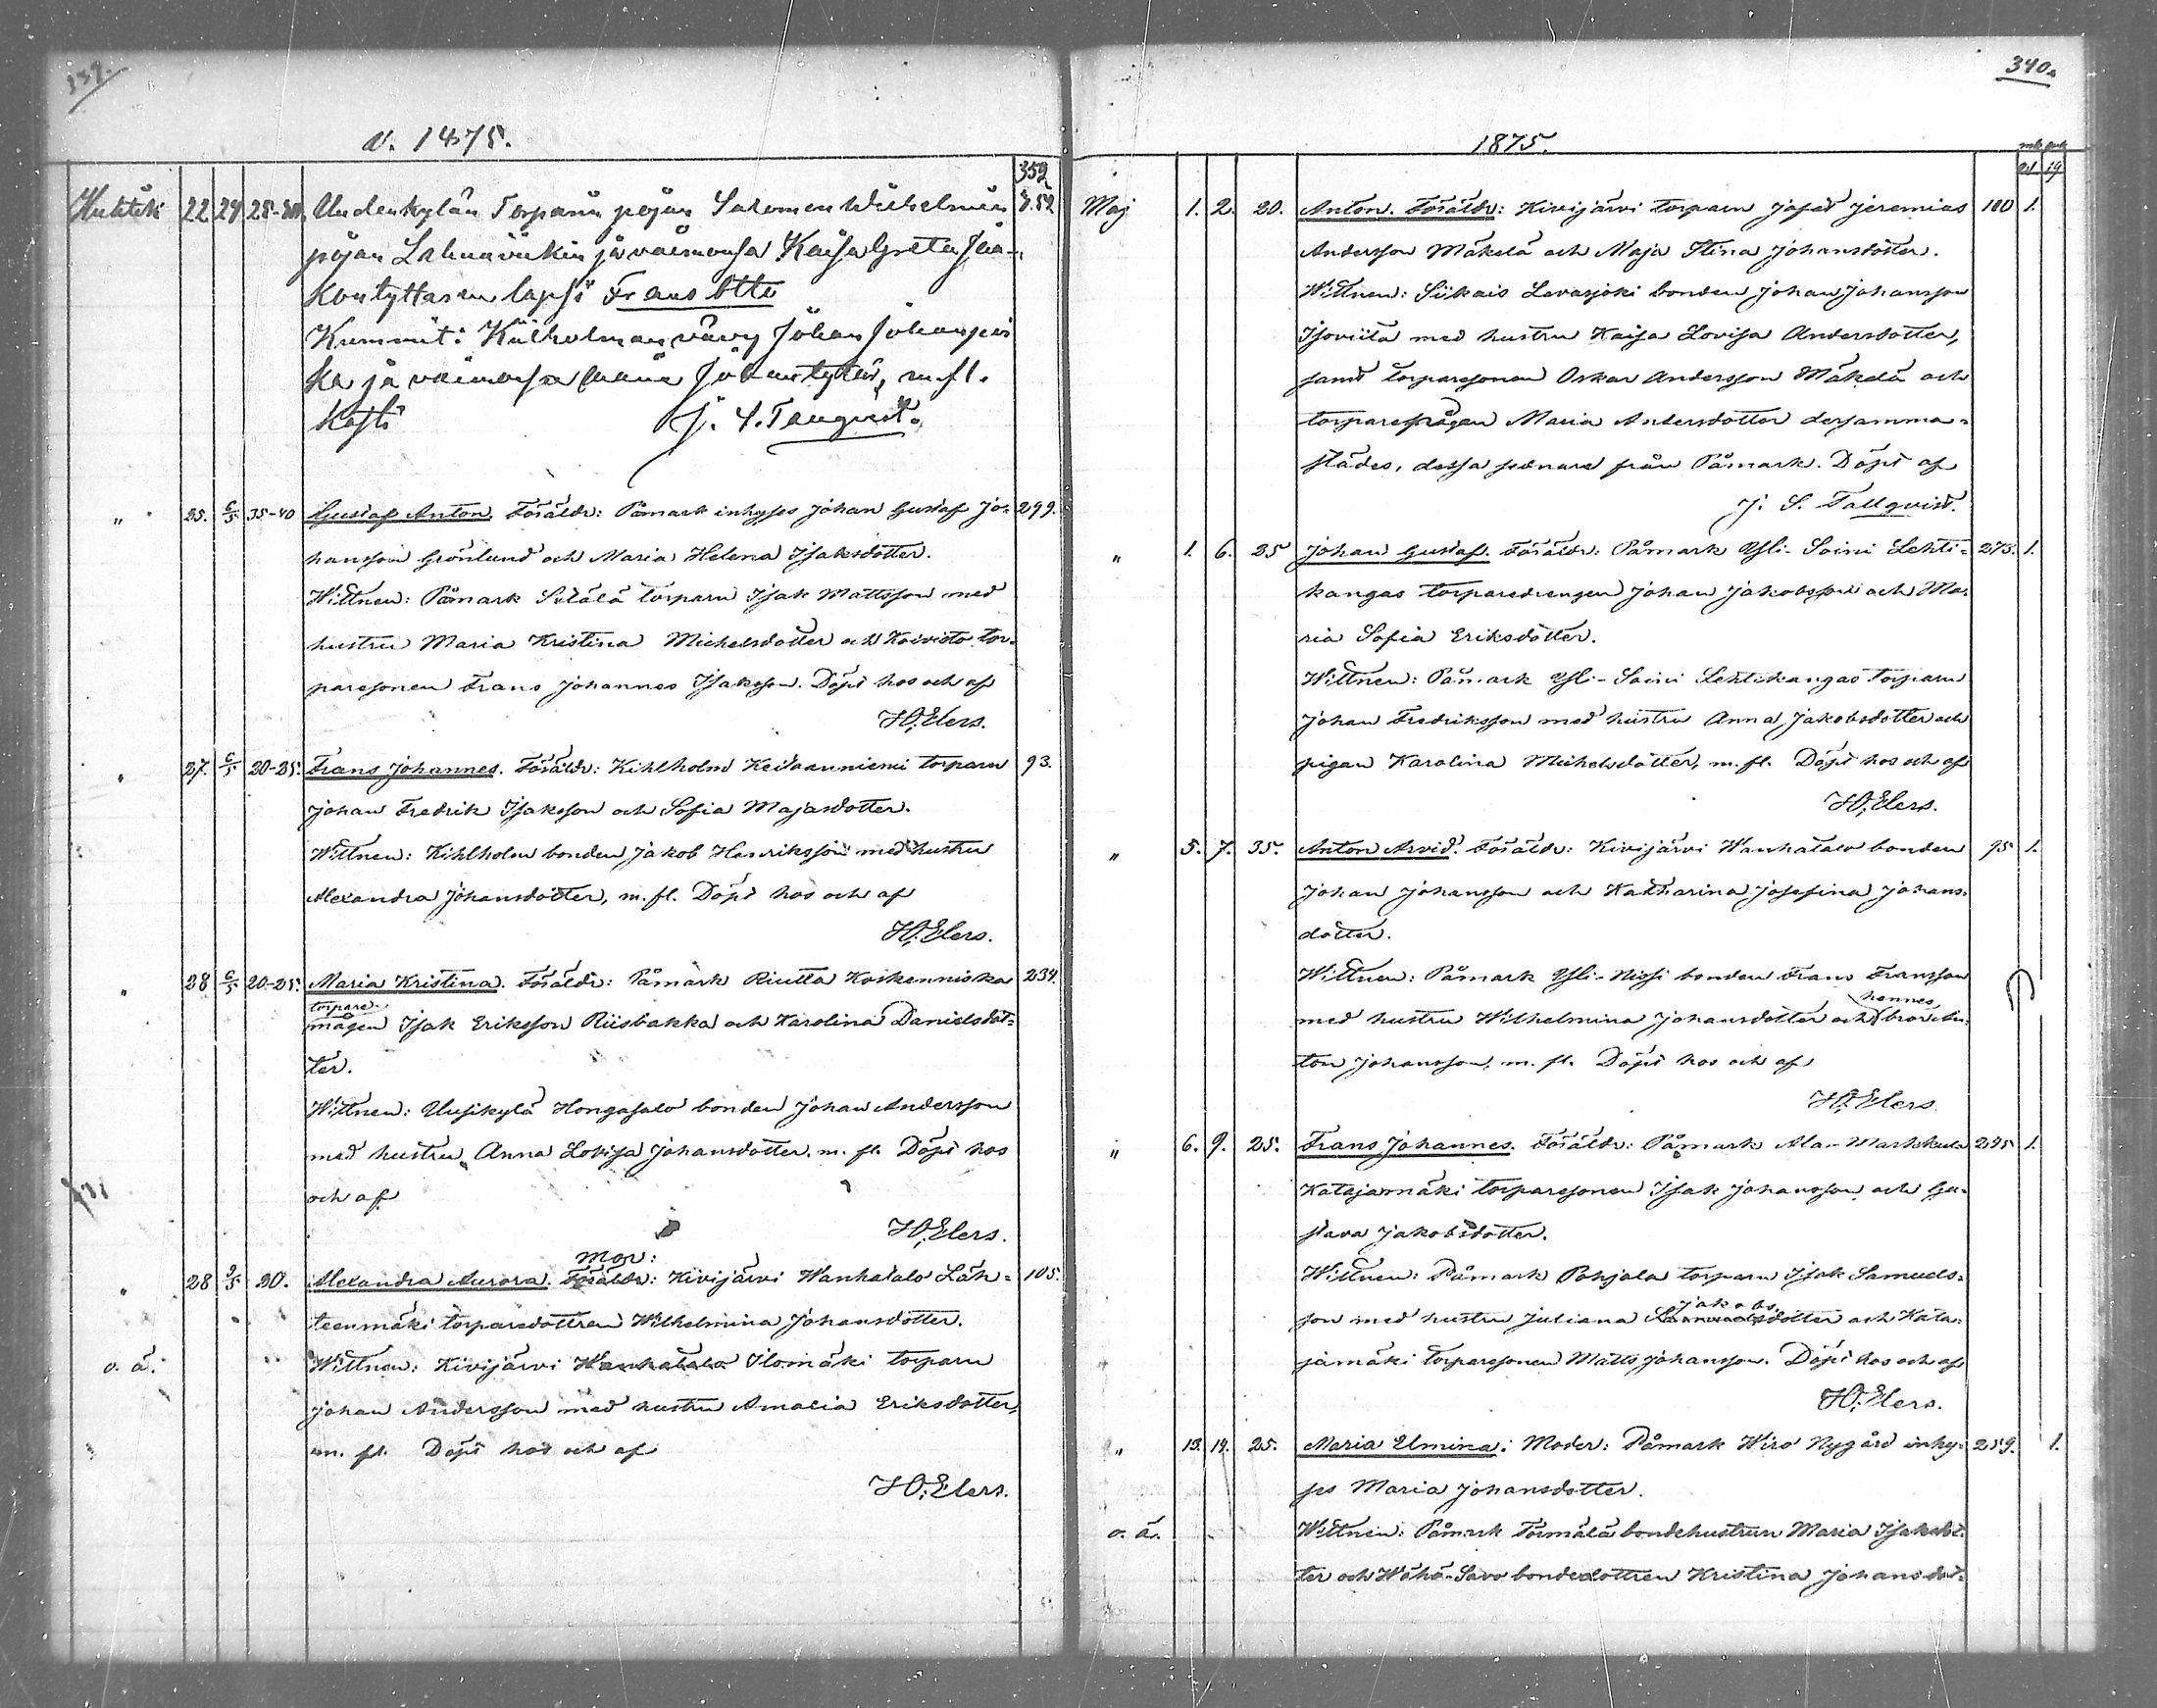 339.
v. 1875.
352
Huhtik 22 24 25-30 Uudenkylän Torparin pojan Salomon Wilhelmin
pojan Lahnaviikin ja vaimonsa Kaisa Greta Isa-
kontyttären lapsi Frans Otto
Kummit: Kiilholman vävy Johan Johanpoi
ka ja vaimonsa Johantytär, m. fl.
Kasti J. S. Tallqvist.
" 25. 6/5 35-40 Gustaf Anton. Föräldr: Påmark inhyses Johan Gustaf Jo- 299.
hansson Grönlund och Maria Helena Isaksdotter.
Wittnen: Påmark Sillälä torparn Isak Mattsson med
hustru Maria Kristina Michelsdotter och Koivisto tor-
paresonen Frans Johannes Isaksson. Döpt hos och af
H.O. Elers.
" 27. 6/5 20-25. Frans Johannes. Föräldr: Kihlholm Keidaanniemi torparn 93.
Johan Fredrik Isaksson och Sofia Majasdotter.
Wittnen: Kihlholm bonden Jakob Henriksson med hustru
Alexandra Johansdotter, m. fl. Döpt hos och af
H.O. Elers.
" 28 6/5 20-25. Maria Kristina. Föräldr: Påmark Riutta Koskenniska 234.
torpare-
mågen Isak Eriksson Riisbakka och Karolina Danielsdot-
ter.
Wittnen: Uusikylä Hongasalo bonden Johan Andersson
med hustru Anna Lovisa Johansdotter. m. fl. Döpt hos
och af
H.O. Elers.
mor:
" 28 9/5 30. Alexandra Aurora. Föräldr: Kivijärvi Wanhatalo Läh- 105.
teenmäki torparedottren Wilhelmina Johansdotter.
o. ä. Wittnen: Kivijärvi Wanhatalo Ilomäki torparn
Johan Andersson med hustru Amalia Eriksdotter,
m. fl. Döpt hos och af
H.O. Elers.
340.
1875.
mk qvk
21. 19
Maj 1. 2. 20. Anton. Föräldr: Kivijärvi torparn Josef Jeremias 100 1.
Andersson Mäkelä och Maja Stina Johansdotter.
Wittnen: Siikais Leväsjoki bonden Johan Johansson
Isoviita med hustru Kaisa Lovisa Andersdotter,
samt torparesonen Oskar Andersson Mäkelä och
torparepigan Maria Andersdotter dersamma-
städes, dessa sednare från Påmark. Döpt af
J. S. Tallqvist.
" 1. 6. 25 Johan Gustaf. Föräldr: Påmark Yli-Soini Lehti- 275. 1.
kangas torparedrengen Johan Jakobsson och Ma-
ria Sofia Eriksdotter.
Wittnen: Påmark Yli-Soini Lehtikangas torparn
Johan Fredriksson med hustru Anna Jakobsdotter och
pigan Karolina Michelsdotter, m. fl. Döpt hos och af
H.O. Elers.
" 5. 7. 35. Anton Arvid. Föräldr: Kivijärvi Wanhatalo bonden 95 1.
Johan Johansson och Katharina Josefina Johans-
dotter.
Wittnen: Påmark Yli-Nissi bonden Frans Fransson
hennes
med hustru Wilhelmina Johansdotter och bror An-
ton Johansson, m. fl. Döpt hos och af
H.O. Elers.
" 6. 9. 25. Frans Johannes. Föräldr: Påmark Ala-Markkula 245 1.
Katajamäki torparesonen Isak Johansson och Gu-
stava Jakobsdotter.
Wittnen: Påmark Pohjala torparn Isak Samuels-
Jakobs
son med hustru Juliana Samuelsdotter och Kata-
jamäki torparesonen Matts Johansson. Döpt hos och af
H.O. Elers.
" 13. 14. 25. Maria Elmina: Moder: Påmark Wiro Nygård inhy- 259. 1.
ses Maria Johansdotter.
o. ä. Wittnen: Påmark Tormälä bondehustrun Maria Isaksdot-
ter och Wähä-Savo bondedottren Kristina Johansdot-